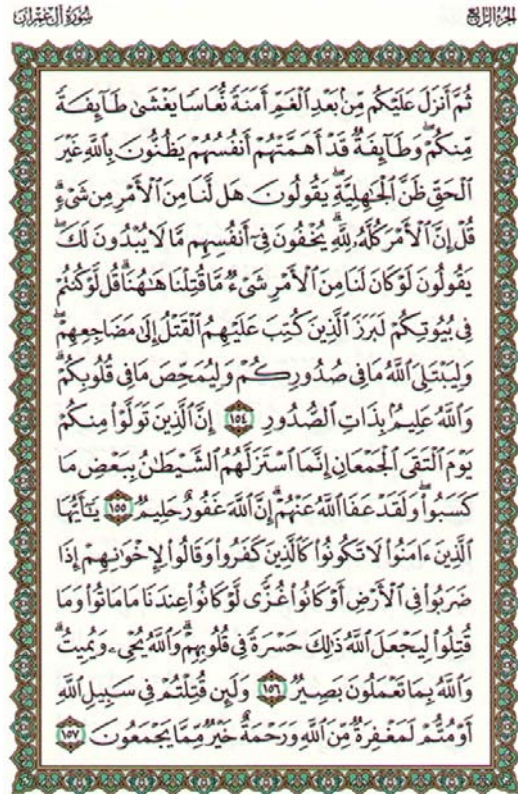 سُورَةُ آلِ عِمْرَان
الجُزْءُ الرَّابِعُ
ثُمَّ أَنزَلَ عَلَيْكُم مِّنۢ بَعْدِ ٱلْغَمِّ أَمَنَةً نُّعَاسًا يَغْشَىٰ طَآئِفَةً
مِّنكُمْ ۖ وَطَآئِفَةٌ قَدْ أَهَمَّتْهُمْ أَنفُسُهُمْ يَظُنُّونَ بِٱللَّهِ غَيْرَ
ٱلْحَقِّ ظَنَّ ٱلْجَٰهِلِيَّةِ ۖ يَقُولُونَ هَل لَّنَا مِنَ ٱلْأَمْرِ مِن شَىْءٍ ۗ
قُلْ إِنَّ ٱلْأَمْرَ كُلَّهُۥ لِلَّهِ ۗ يُخْفُونَ فِىٓ أَنفُسِهِم مَّا لَا يُبْدُونَ لَكَ ۖ
يَقُولُونَ لَوْ كَانَ لَنَا مِنَ ٱلْأَمْرِ شَىْءٌ مَّا قُتِلْنَا هَٰهُنَا ۗ قُل لَّوْ كُنتُمْ
فِى بُيُوتِكُمْ لَبَرَزَ ٱلَّذِينَ كُتِبَ عَلَيْهِمُ ٱلْقَتْلُ إِلَىٰ مَضَاجِعِهِمْ ۖ
وَلِيَبْتَلِىَ ٱللَّهُ مَا فِى صُدُورِكُمْ وَلِيُمَحِّصَ مَا فِى قُلُوبِكُمْ ۗ
وَٱللَّهُ عَلِيمٌۢ بِذَاتِ ٱلصُّدُورِ ١٥٤ إِنَّ ٱلَّذِينَ تَوَلَّوْا۟ مِنكُمْ
يَوْمَ ٱلْتَقَى ٱلْجَمْعَانِ إِنَّمَا ٱسْتَزَلَّهُمُ ٱلشَّيْطَٰنُ بِبَعْضِ مَا
كَسَبُوا۟ ۖ وَلَقَدْ عَفَا ٱللَّهُ عَنْهُمْ ۗ إِنَّ ٱللَّهَ غَفُورٌ حَلِيمٌ ١٥٥ يَٰٓأَيُّهَا
ٱلَّذِينَ ءَامَنُوا۟ لَا تَكُونُوا۟ كَٱلَّذِينَ كَفَرُوا۟ وَقَالُوا۟ لِإِخْوَٰنِهِمْ إِذَا
ضَرَبُوا۟ فِى ٱلْأَرْضِ أَوْ كَانُوا۟ غُزًّى لَّوْ كَانُوا۟ عِندَنَا مَا مَاتُوا۟ وَمَا
قُتِلُوا۟ لِيَجْعَلَ ٱللَّهُ ذَٰلِكَ حَسْرَةً فِى قُلُوبِهِمْ ۗ وَٱللَّهُ يُحْىِۦ وَيُمِيتُ ۗ
وَٱللَّهُ بِمَا تَعْمَلُونَ بَصِيرٌ ١٥٦ وَلَئِن قُتِلْتُمْ فِى سَبِيلِ ٱللَّهِ
أَوْ مُتُّمْ لَمَغْفِرَةٌ مِّنَ ٱللَّهِ وَرَحْمَةٌ خَيْرٌ مِّمَّا يَجْمَعُونَ ١٥٧